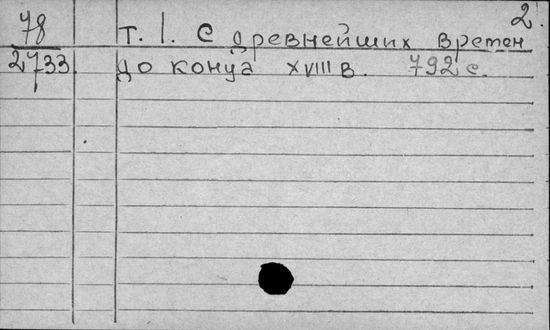 2.
78
2733
т. 1. С древнейших времен
до конца XVIII в. 792 с.